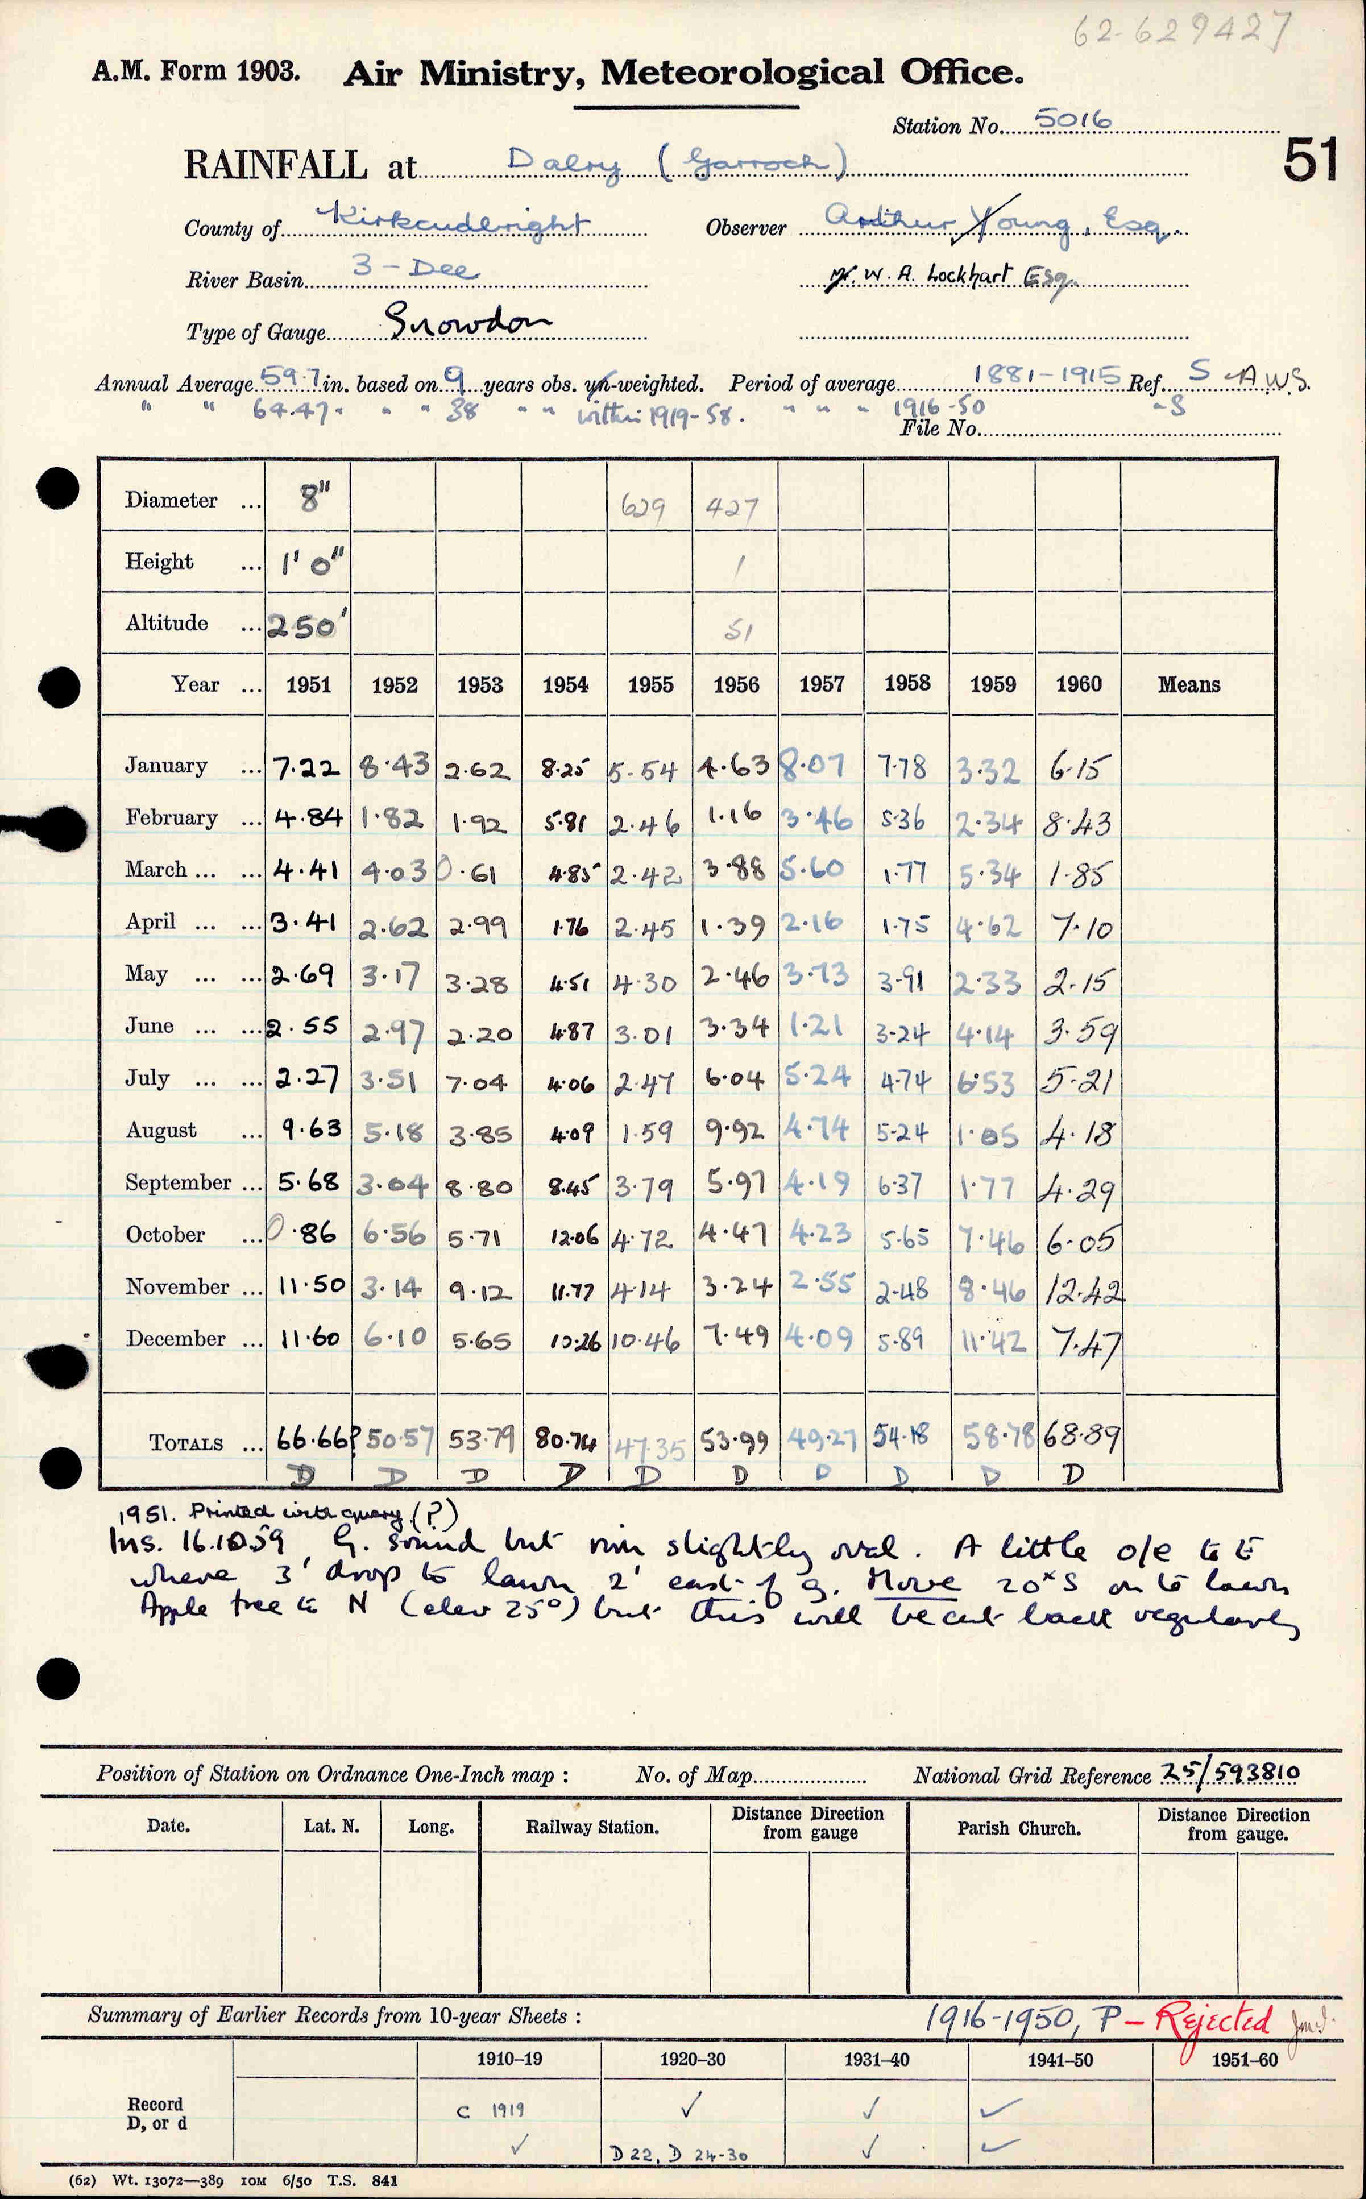 62-629427
A.M. Form 1903. Air Ministry, Meteorological Office.
Station No. 5016
51
RAINFALL at Dalry (Garroch)
County of Kirkcudbright Observer Arthur Young, Esq.
River Basin 3 - Dee W. A. Lockhart Esq.
Type of Gauge Snowdon
Annual Average 59.7 in. based on 9 years obs. un-weighted. Period of average 1881-1915 Ref. S AWS.
" " 64.47. " " 38 " " within 1919-58. " " " 1916-50 -S
File No.
Diameter ... 8" 629 427
Height ... 1' 0" 1
Altitude ... 250' 51
Year ... 1951 1952 1953 1954 1955 1956 1957 1958 1959 1960 Means
January ... 7.22 8.43 2.62 8.25 5.54 4.63 8.07 7.78 3.32 6.15
February ... 4.84 1.82 1.92 5.81 2.46 1.16 3.46 5.36 2.34 8.43
March ... ... 4.41 4.03 0.61 4.85 2.42 3.88 5.60 1.77 5.34 1.85
April ... ... 3.41 2.62 2.99 1.76 2.45 1.39 2.16 1.75 4.62 7.10
May ... ... 2.69 3.17 3.28 4.51 4.30 2.46 3.73 3.91 2.33 2.15
June ... ... 2.55 2.97 2.20 4.87 3.01 3.34 1.21 3.24 4.14 3.59
July ... ... 2.27 3.51 7.04 4.06 2.47 6.04 5.24 4.74 6.53 5.21
August ... 9.63 5.18 3.85 4.09 1.59 9.92 4.74 5.24 1.05 4.18
September ... 5.68 3.04 8.80 8.45 3.79 5.97 4.19 6.37 1.77 4.29
October ... 0.86 6.56 5.71 12.06 4.72 4.47 4.23 5.65 7.46 6.05
November ... 11.50 3.14 9.12 11.77 4.14 3.24 2.55 2.48 8.46 12.42
December ... 11.60 6.10 5.65 10.26 10.46 7.49 4.09 5.89 11.42 7.47
TOTALS ... 66.66? 50.57 53.79 80.74 47.35 53.99 49.27 54.18 58.78 68.89
D D D D D D D D D D
1951. Printed with query (?)
Ins. 16.10.59 G. sound but rim slightly oval. A little o/e to E
where 3' drop to lawn 2' east of g. Move 20x S on to lawn
Apple tree to N (elev 25°) but this will be cut back regularly
Position of Station on Ordnance One-Inch map : No. of Map National Grid Reference 25/593810
Date. Lat. N. Long. Railway Station. Distance Direction from gauge Parish Church. Distance Direction from gauge.
Summary of Earlier Records from 10-year Sheets : 1916-1950, P - Rejected
1910–19 1920–30 1931–40 1941–50 1951–60
Record C 1919 ✓ ✓ ✓
D, or d ✓ D 22, D 24-30 ✓ ✓
(62) Wt. 13072—389 10M 6/50 T.S. 841